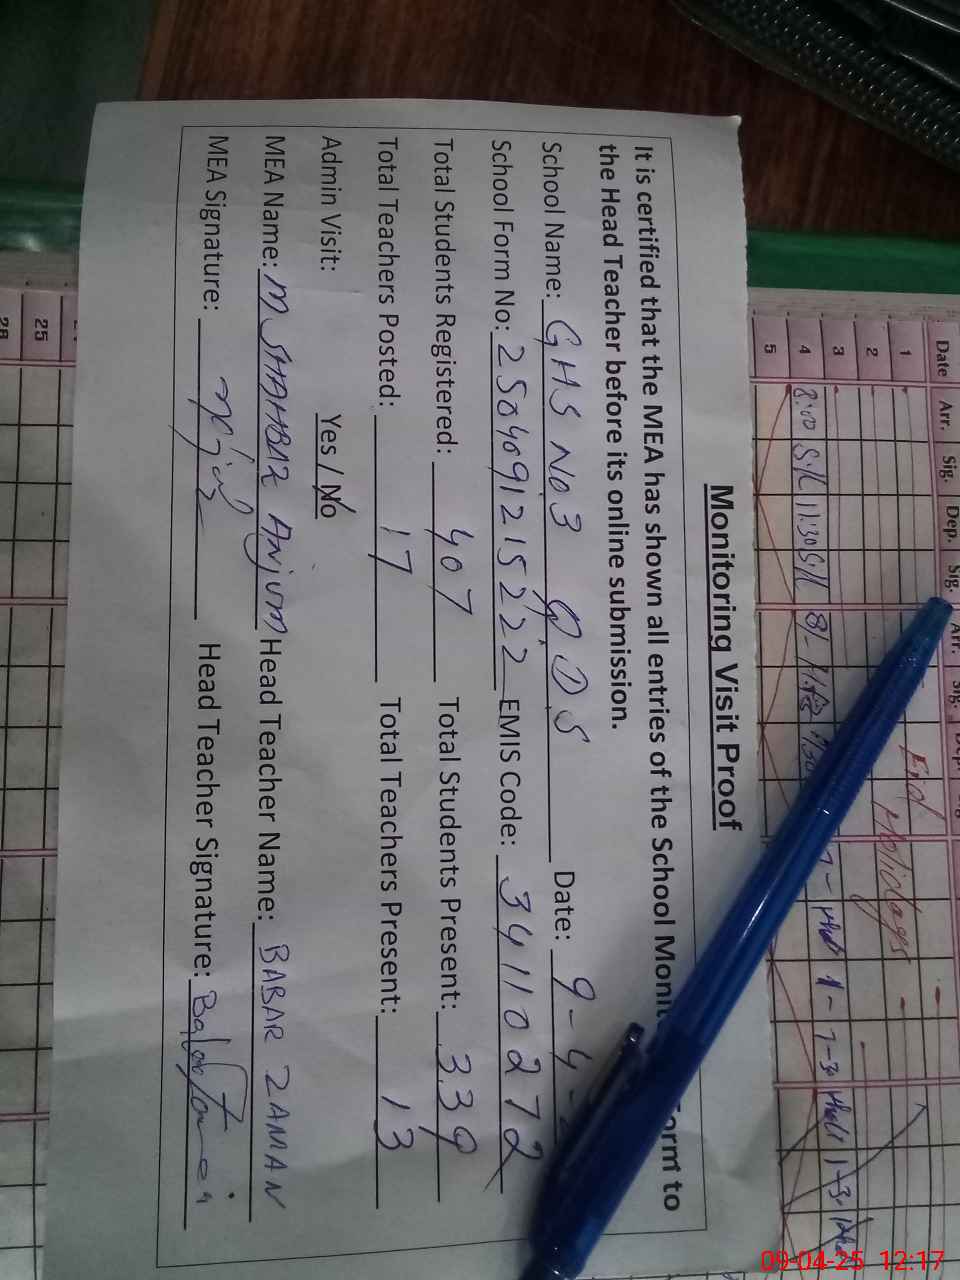 Monitoring Visit Proof
It is certified that the MEA has shown all entries of the School Monit Form to
the Head Teacher before its online submission.
School Name: GHS No3 DDS Date: 9-4-
School Form No: 2504091215222 EMIS Code: 34110272
Total Students Registered: 407 Total Students Present: 339
Total Teachers Posted: 17 Total Teachers Present: 13
Admin Visit: Yes / No
MEA Name: M SHAHBAZ ANJUM Head Teacher Name: BABAR ZAMAN
MEA Signature: Head Teacher Signature:
Date Arr. Sig. Dep. Sig. Arr. Sig. Dep.
1
2
3
4 8:00 11:30
5
Eid Holidays
25
26
09-04-25 12:17